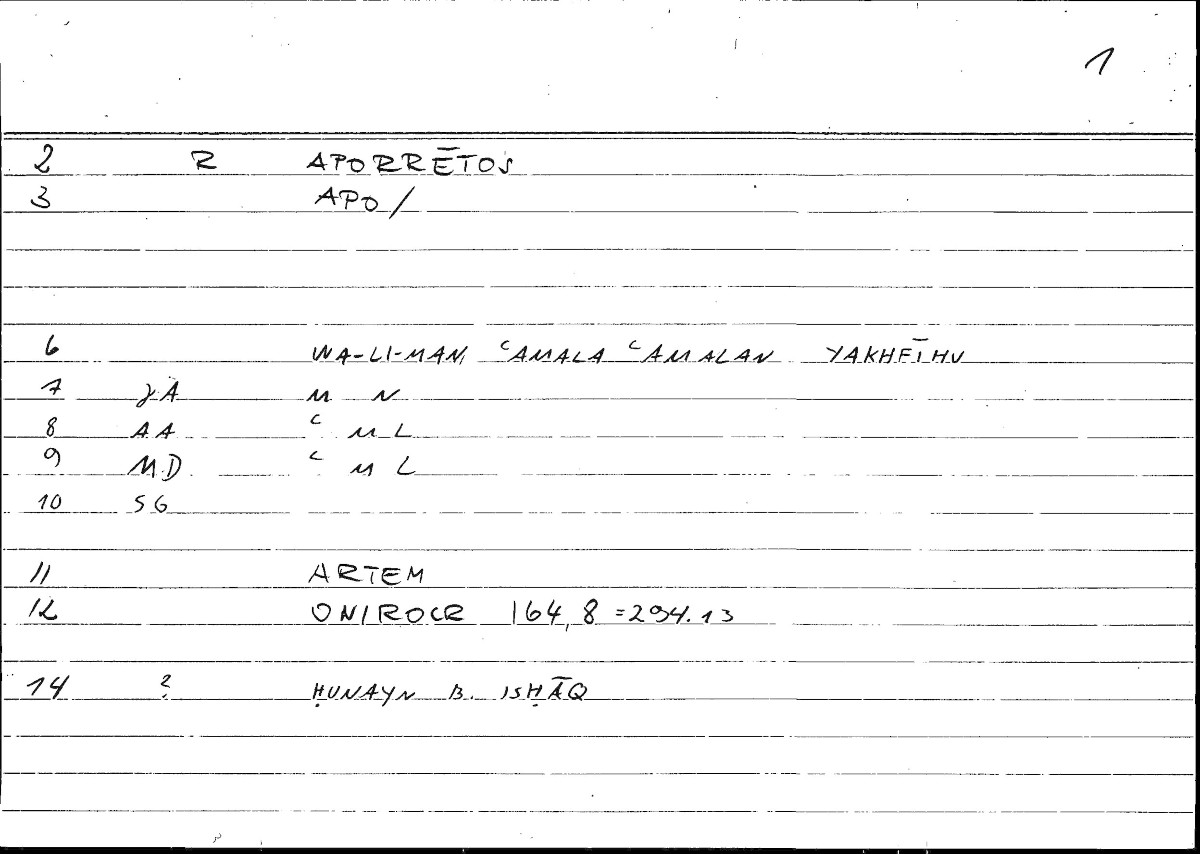 1
2 R APORRĒTOS
3 APO/
6 WA-LI-MAN ʿAMALA ʿAMALAN YAKHFĪHU
7 M N
8 AA ʿ M L
9 MD ʿ M L
10 SG
11 ARTEM
12 ONIROCR 164,8 =294.13
14 ? ḤUNAYN B. ISḤĀQ